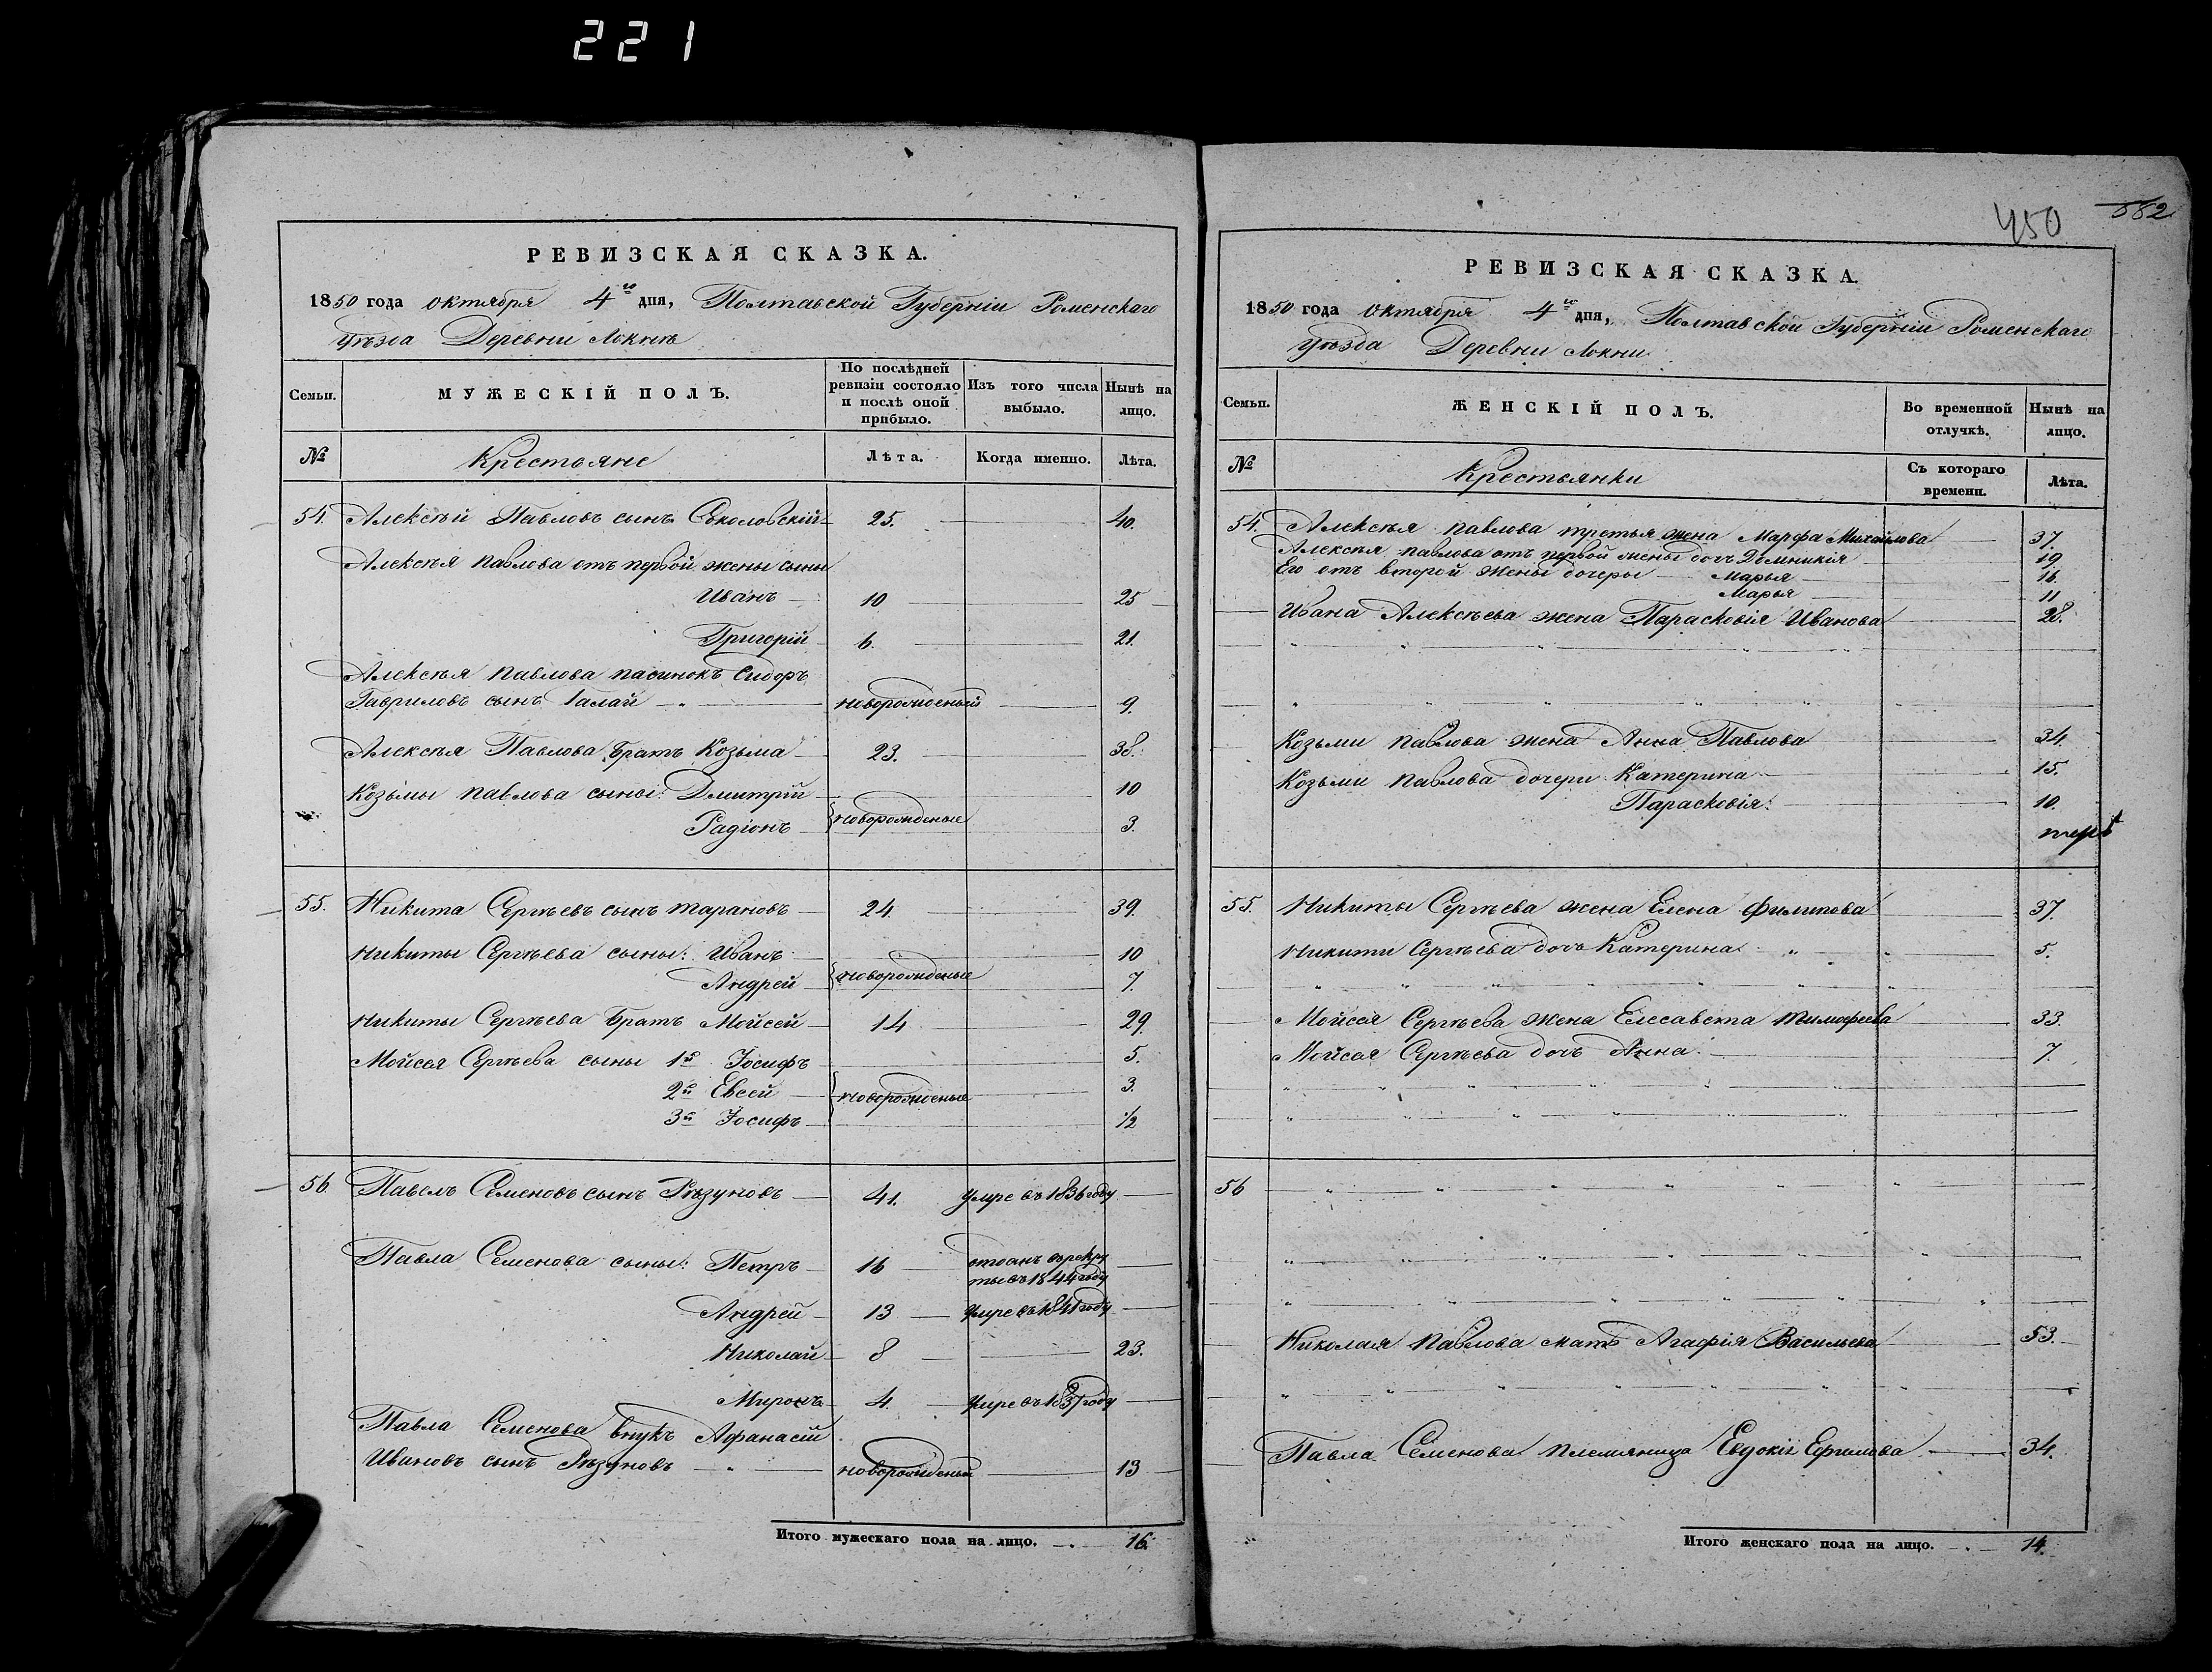 221
РЕВИЗСКАЯ СКАЗКА.
1850 года октября 4го дня, Полтавской Губерніи Роменскаго
уѣзда Деревни Локнѣ
Семьи. МУЖЕСКІЙ ПОЛЪ. По послѣдней ревизіи состояло и послѣ оной прибыло. Изъ того числа выбыло. Нынѣ на лицо.
№ Крестьяне Лѣта. Когда именно. Лѣта.
54. Алексѣй Павловъ сынъ Соколовскій 25. 40.
Алексѣя Павлова отъ первой жены сыны
Иванъ 10 25
Григорій 6. 21.
Алексѣя Павлова пасинокъ Сидоръ
Гавриловъ сынъ Галай новорожденый 9.
Алексѣя Павлова братъ Козьма 23. 38.
Козьмы Павлова сыны: Дмитрій 10
Радіонъ новорожденые 3.
55. Никита Сергѣевъ сынъ Тарановъ 24 39.
Никиты Сергѣева сыны: Иванъ 10
Андрей новорожденые 7.
Никиты Сергѣева братъ Мойсей 14 29.
Мойсея Сергѣева сыны 1й Іосифъ 5.
2й Евсей новорожденые 3.
3й Іосифъ 1/2
56. Павелъ Семеновъ сынъ Рѣзуновъ 41. умре въ 1836 году
Павла Семенова сыны: Петръ 16 отданъ въ рекру
ты въ 1844 году
Андрей 13 умре въ 1841 году
Николай 8 23.
Миронъ 4. умре въ 1837 году
Павла Семенова внукъ Афанасій
Ивановъ сынъ Рѣзуновъ новорожденый 13
Итого мужескаго пола на лицо. 16.
450 582
РЕВИЗСКАЯ СКАЗКА.
1850 года октября 4го дня, Полтавской Губерніи Роменскаго
уѣзда Деревни Локни
Семьи. ЖЕНСКІЙ ПОЛЪ. Во временной отлучкѣ. Нынѣ на лицо.
№ Крестьянки Съ котораго времени. Лѣта.
54. Алексѣя Павлова третья жена Марфа Михайлова 37
Алексѣя Павлова отъ первой жены дочь Домникія 19
Его отъ второй жены дочеры Марья 16.
Марья 11
Ивана Алексѣева жена Парасковія Иванова 28.
Козьми Павлова жена Анна Павлова 34.
Козьми Павлова дочери Катерина 15.
Парасковія: 10.
55. Никиты Сергѣева жена Елена Филипова 37.
Никити Сергѣева дочь Катерина 5.
Мойсея Сергѣева жена Елесавета Тимофеева 33.
Мойсея Сергѣева дочь Анна 7.
56
Николая Павлова мать Агафія Васильева 53.
Павла Семенова племяница Евдокія Ефимова 34.
Итого женскаго пола на лицо. 14.